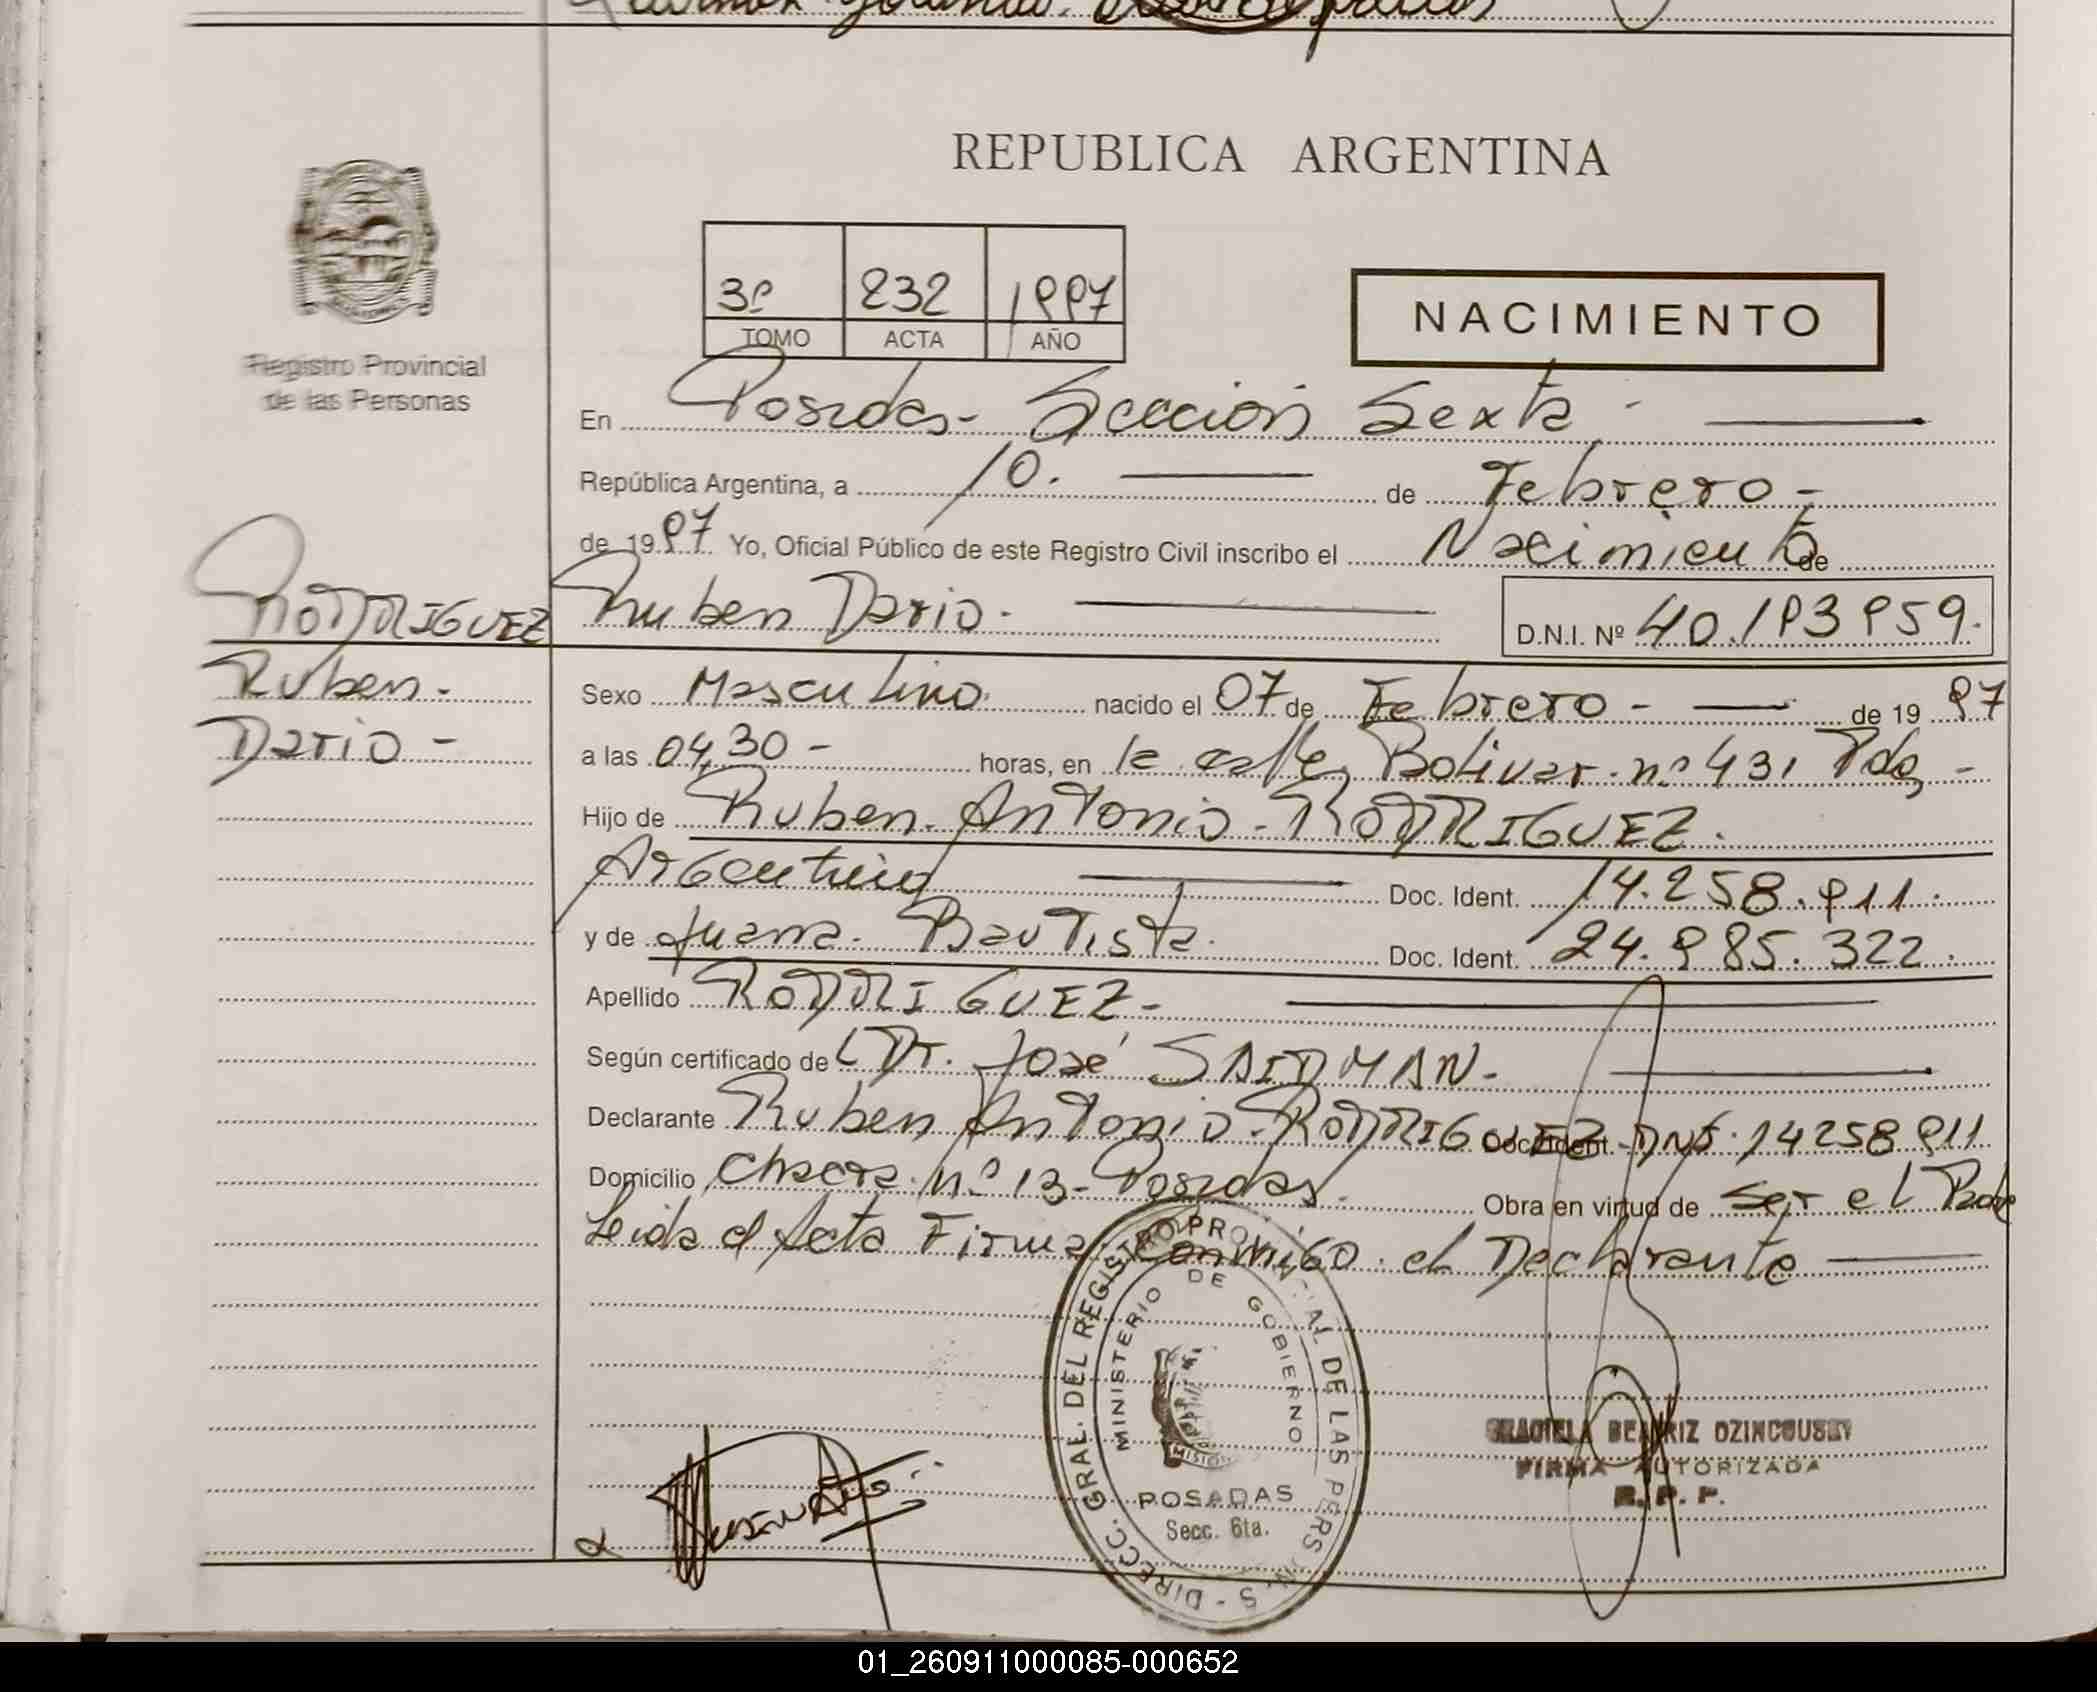 REPUBLICA ARGENTINA
Registro Provincial
de las Personas
3º 232 1997
TOMO ACTA AÑO
NACIMIENTO
En Posadas - Sección Sexta -
República Argentina, a 10. de Febrero -
de 1997 Yo, Oficial Público de este Registro Civil inscribo el Nacimiento de
RODRIGUEZ
Ruben -
Dario -
Ruben Dario -
D.N.I. Nº 40.193959.
Sexo Masculino nacido el 07 de Febrero - de 1997
a las 04,30 - horas, en la calle Bolivar nº 431 Pdas -
Hijo de Ruben Antonio - RODRIGUEZ.
Argentino Doc. Ident. 14.258.911.
y de Juana Bautista. Doc. Ident. 24.985.322.
Apellido RODRIGUEZ -
Según certificado de Dr. José SAIDMAN -
Declarante Ruben Antonio - RODRIGUEZ Doc. Ident. DNI. 14258911
Domicilio Chacra Nº 13 - Posadas. Obra en virtud de Ser el Padre
Leida el Acta Firma Conmigo el Declarante
DIRECC. GRAL. DEL REGISTRO PROV AL DE LAS PERS
MINISTERIO DE GOBIERNO
POSADAS
Secc. 6ta.
GRACIELA BEATRIZ
FIRMA AUTORIZADA
R. P. P.
01_260911000085-000652